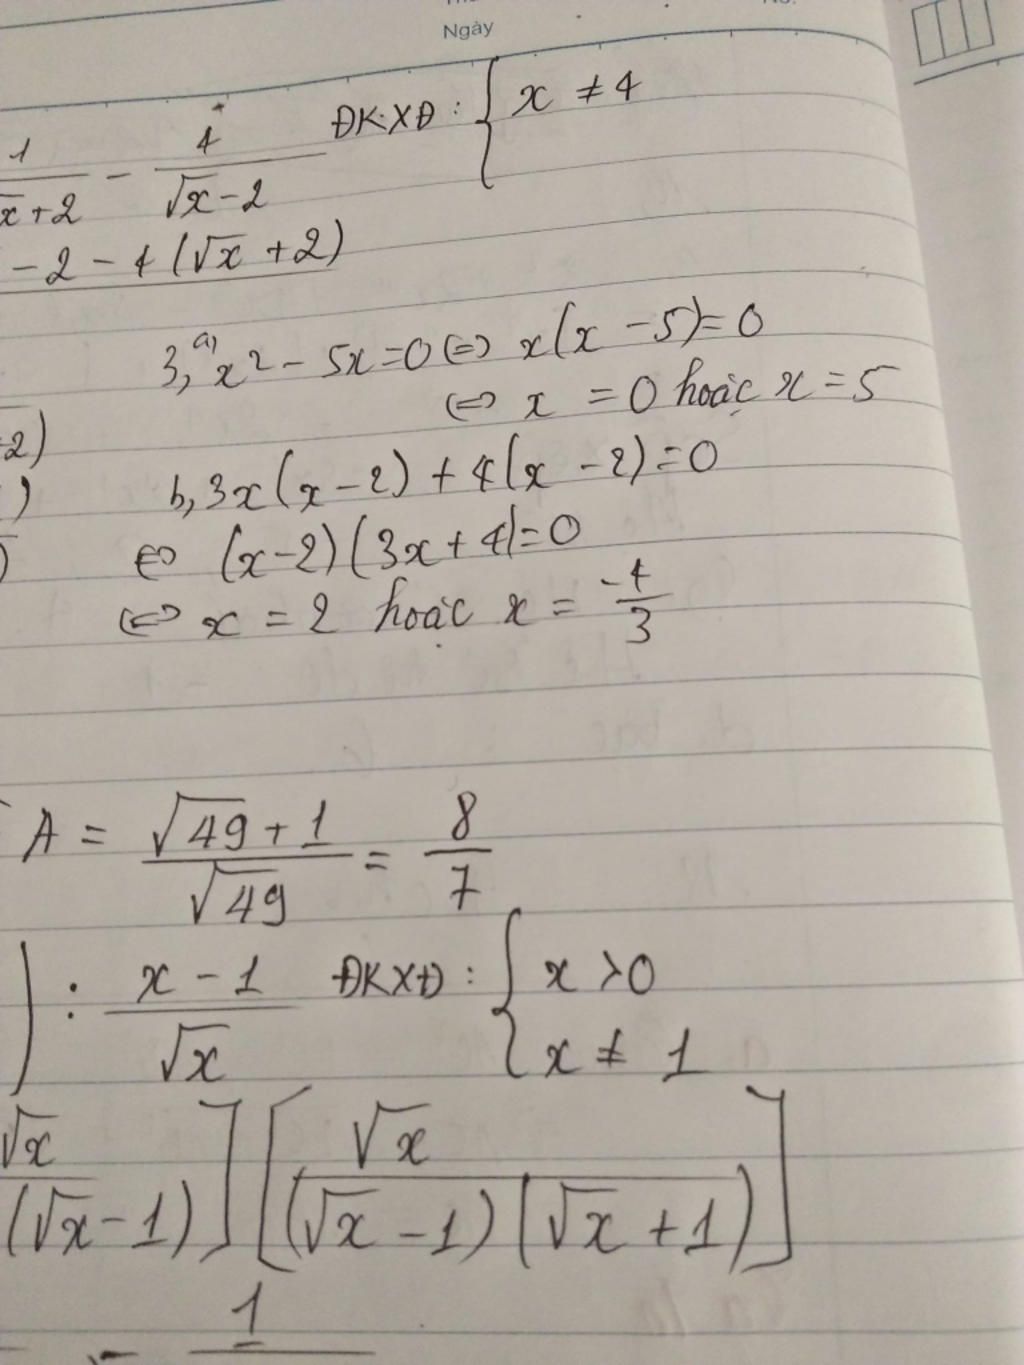 Ngày
ĐKXĐ : { x ≠ 4
1/(√x+2) - 4/(√x-2)
-2-4(√x+2)
3, a) x² - 5x = 0 ⇔ x(x-5) = 0
⇔ x = 0 hoặc x = 5
-2)
)
b, 3x(x-2) + 4(x-2) = 0
)
⇔ (x-2)(3x+4) = 0
⇔ x = 2 hoặc x = -4/3
A = (√49+1)/√49 = 8/7
) : (x-1)/√x ĐKXĐ : { x > 0
x ≠ 1
√x/(√x-1)] [√x/((√x-1)(√x+1))]
1